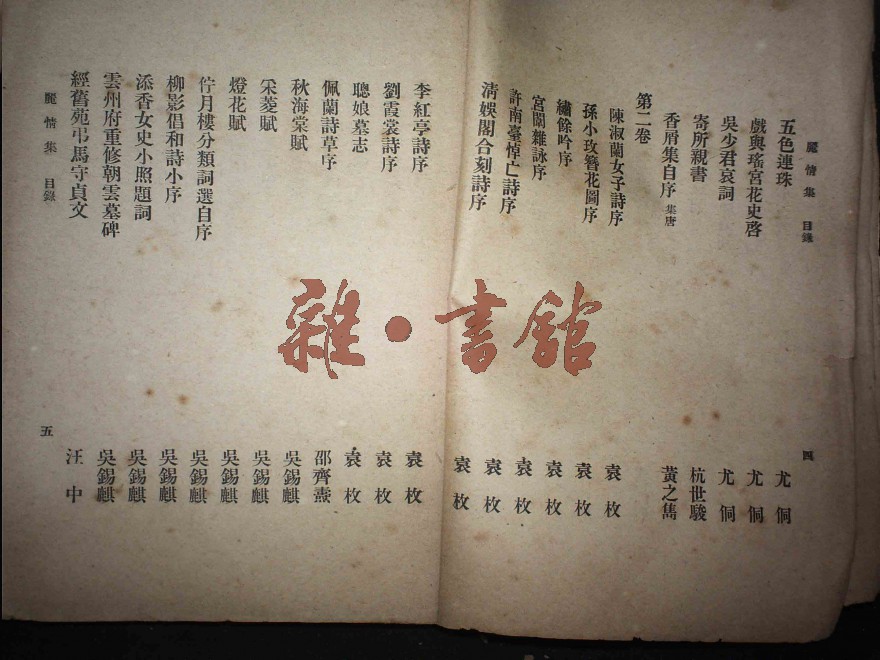 麗情集 目錄 四
五色連珠 尤侗
戲與瑤宮花史啓 尤侗
吳少君哀詞 尤侗
寄所親書 杭世駿
香屑集自序 集唐 黃之雋
第二卷
陳淑蘭女子詩序 袁枚
孫小玫簪花圖序 袁枚
繡餘吟序 袁枚
宮闈雜詠序 袁枚
許南臺悼亡詩序 袁枚
清娛閣合刻詩序 袁枚
李紅亭詩序 袁枚
劉霞裳詩序 袁枚
聰娘墓志 袁枚
佩蘭詩草序 邵齊燾
秋海棠賦 吳錫麒
采菱賦 吳錫麒
燈花賦 吳錫麒
佇月樓分類詞選自序 吳錫麒
柳影倡和詩小序 吳錫麒
添香女史小照題詞 吳錫麒
雲州府重修朝雲墓碑 吳錫麒
經舊苑弔馬守貞文 汪中
麗情集 目錄 五
雜·書館